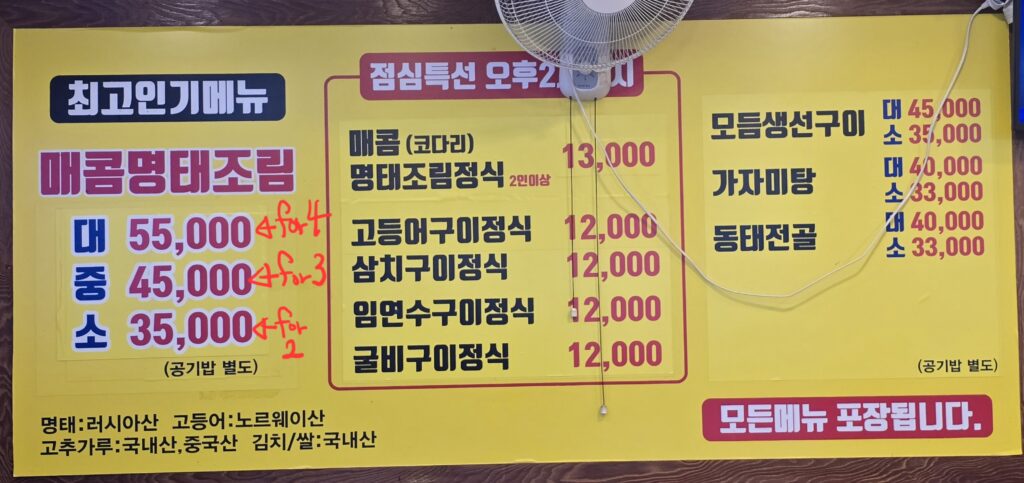 최고인기메뉴
매콤명태조림
대 55,000 for 4
중 45,000 for 3
소 35,000 for 2
(공기밥 별도)
명태:러시아산 고등어:노르웨이산
고추가루:국내산,중국산 김치/쌀:국내산
점심특선 오후2 시
매콤 (코다리)
명태조림정식 2인이상 13,000
고등어구이정식 12,000
삼치구이정식 12,000
임연수구이정식 12,000
굴비구이정식 12,000
모듬생선구이 대 45,000
소 35,000
가자미탕 대 40,000
소 33,000
동태전골 대 40,000
소 33,000
(공기밥 별도)
모든메뉴 포장됩니다.